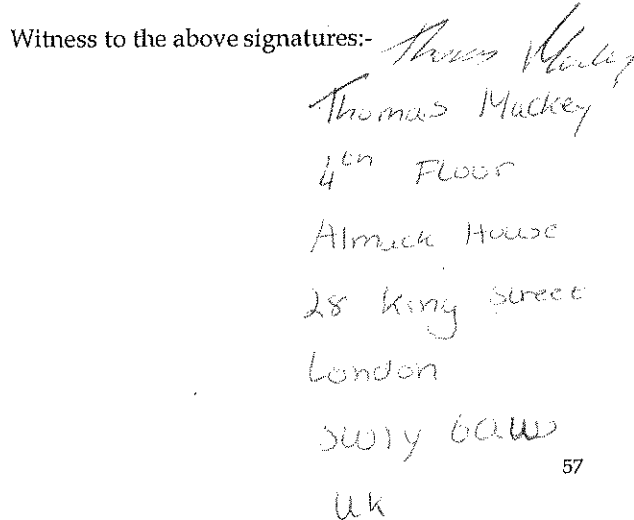 Witness to the above signatures:- Thomas Mackey
Thomas Mackey
4th Floor
Almack House
28 King Street
London
SW1Y 6QW
57
UK